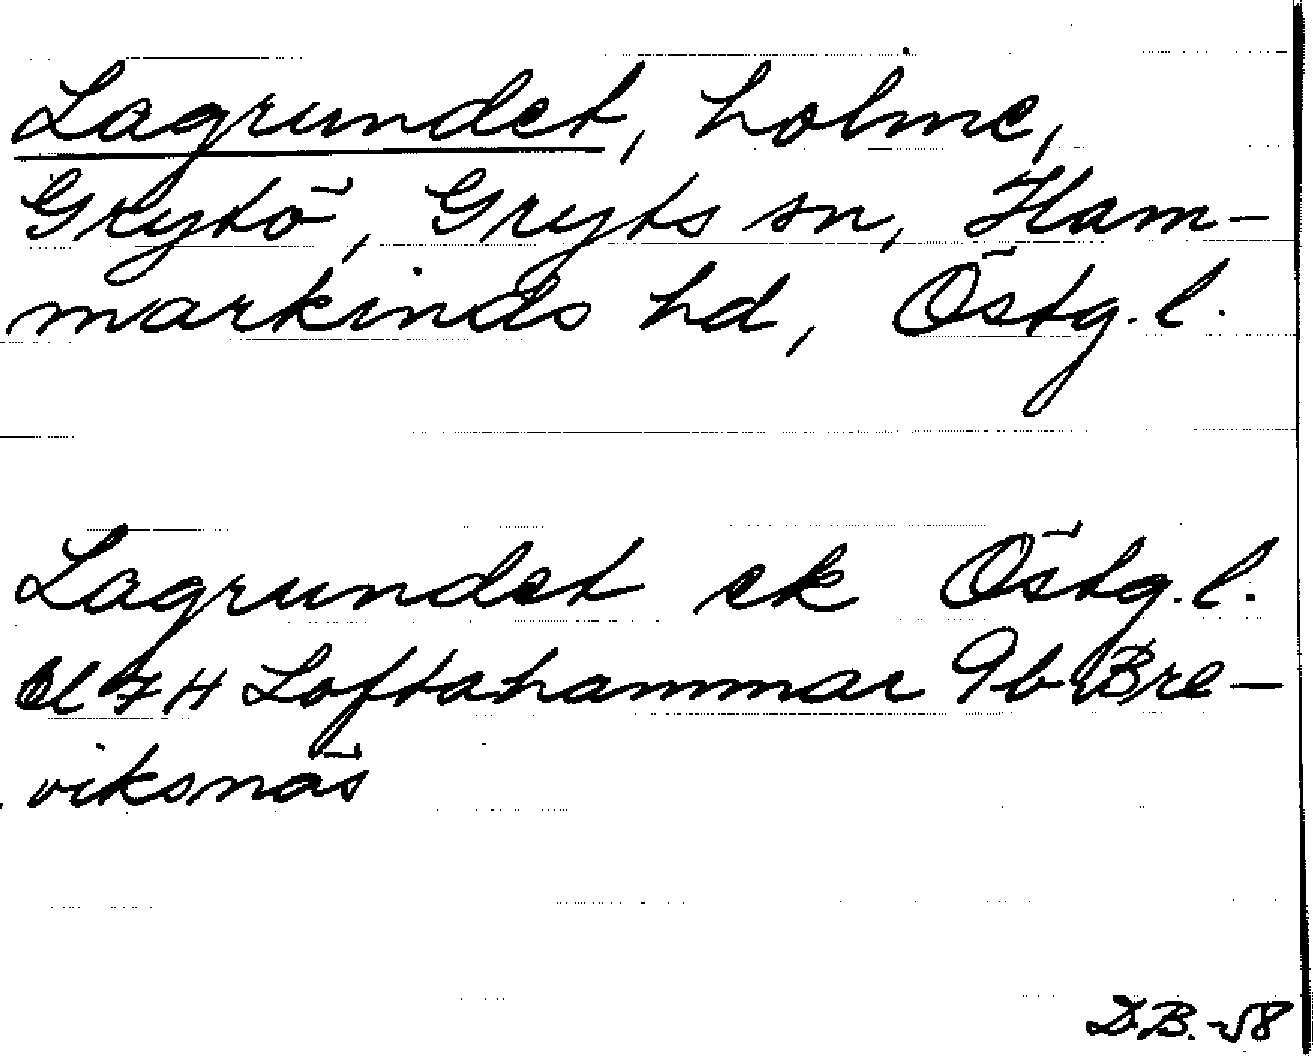 Lagrundet, holme,
Grytö, Gryts sn, Ham-
markinds hd, Östg. l.
Lagrundet ek Östg. l.
bl 7 H Loftahammar 9b Bre-
viksnäs
D.B. -58